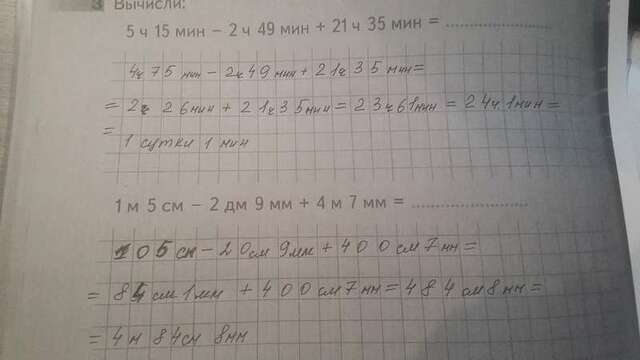 3 Вычисли.
5 ч 15 мин − 2 ч 49 мин + 21 ч 35 мин = ....................
4ч 75 мин − 2ч 49 мин + 21ч 35 мин =
= 2ч 26 мин + 21ч 35 мин = 23ч 61 мин = 24ч 1 мин =
= 1 сутки 1 мин
1 м 5 см − 2 дм 9 мм + 4 м 7 мм = ....................
105 см − 20 см 9 мм + 400 см 7 мм =
= 84 см 1 мм + 400 см 7 мм = 484 см 8 мм =
= 4 м 84 см 8 мм